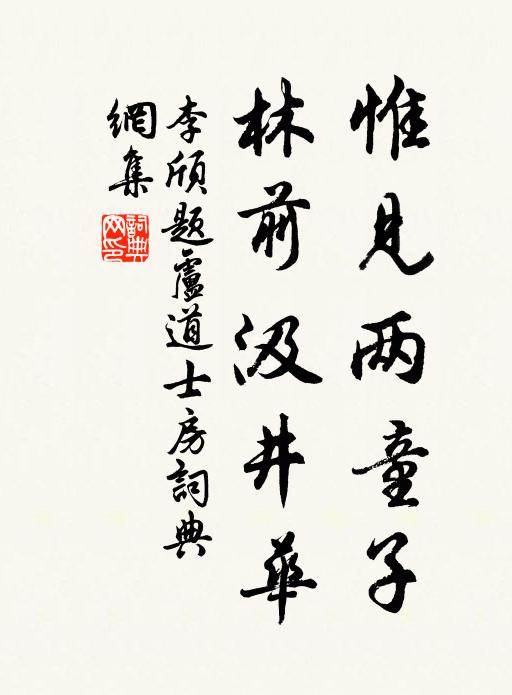 惟見两童子
林前汲井華
李頎題盧道士房詞典
網集
詞典
网印